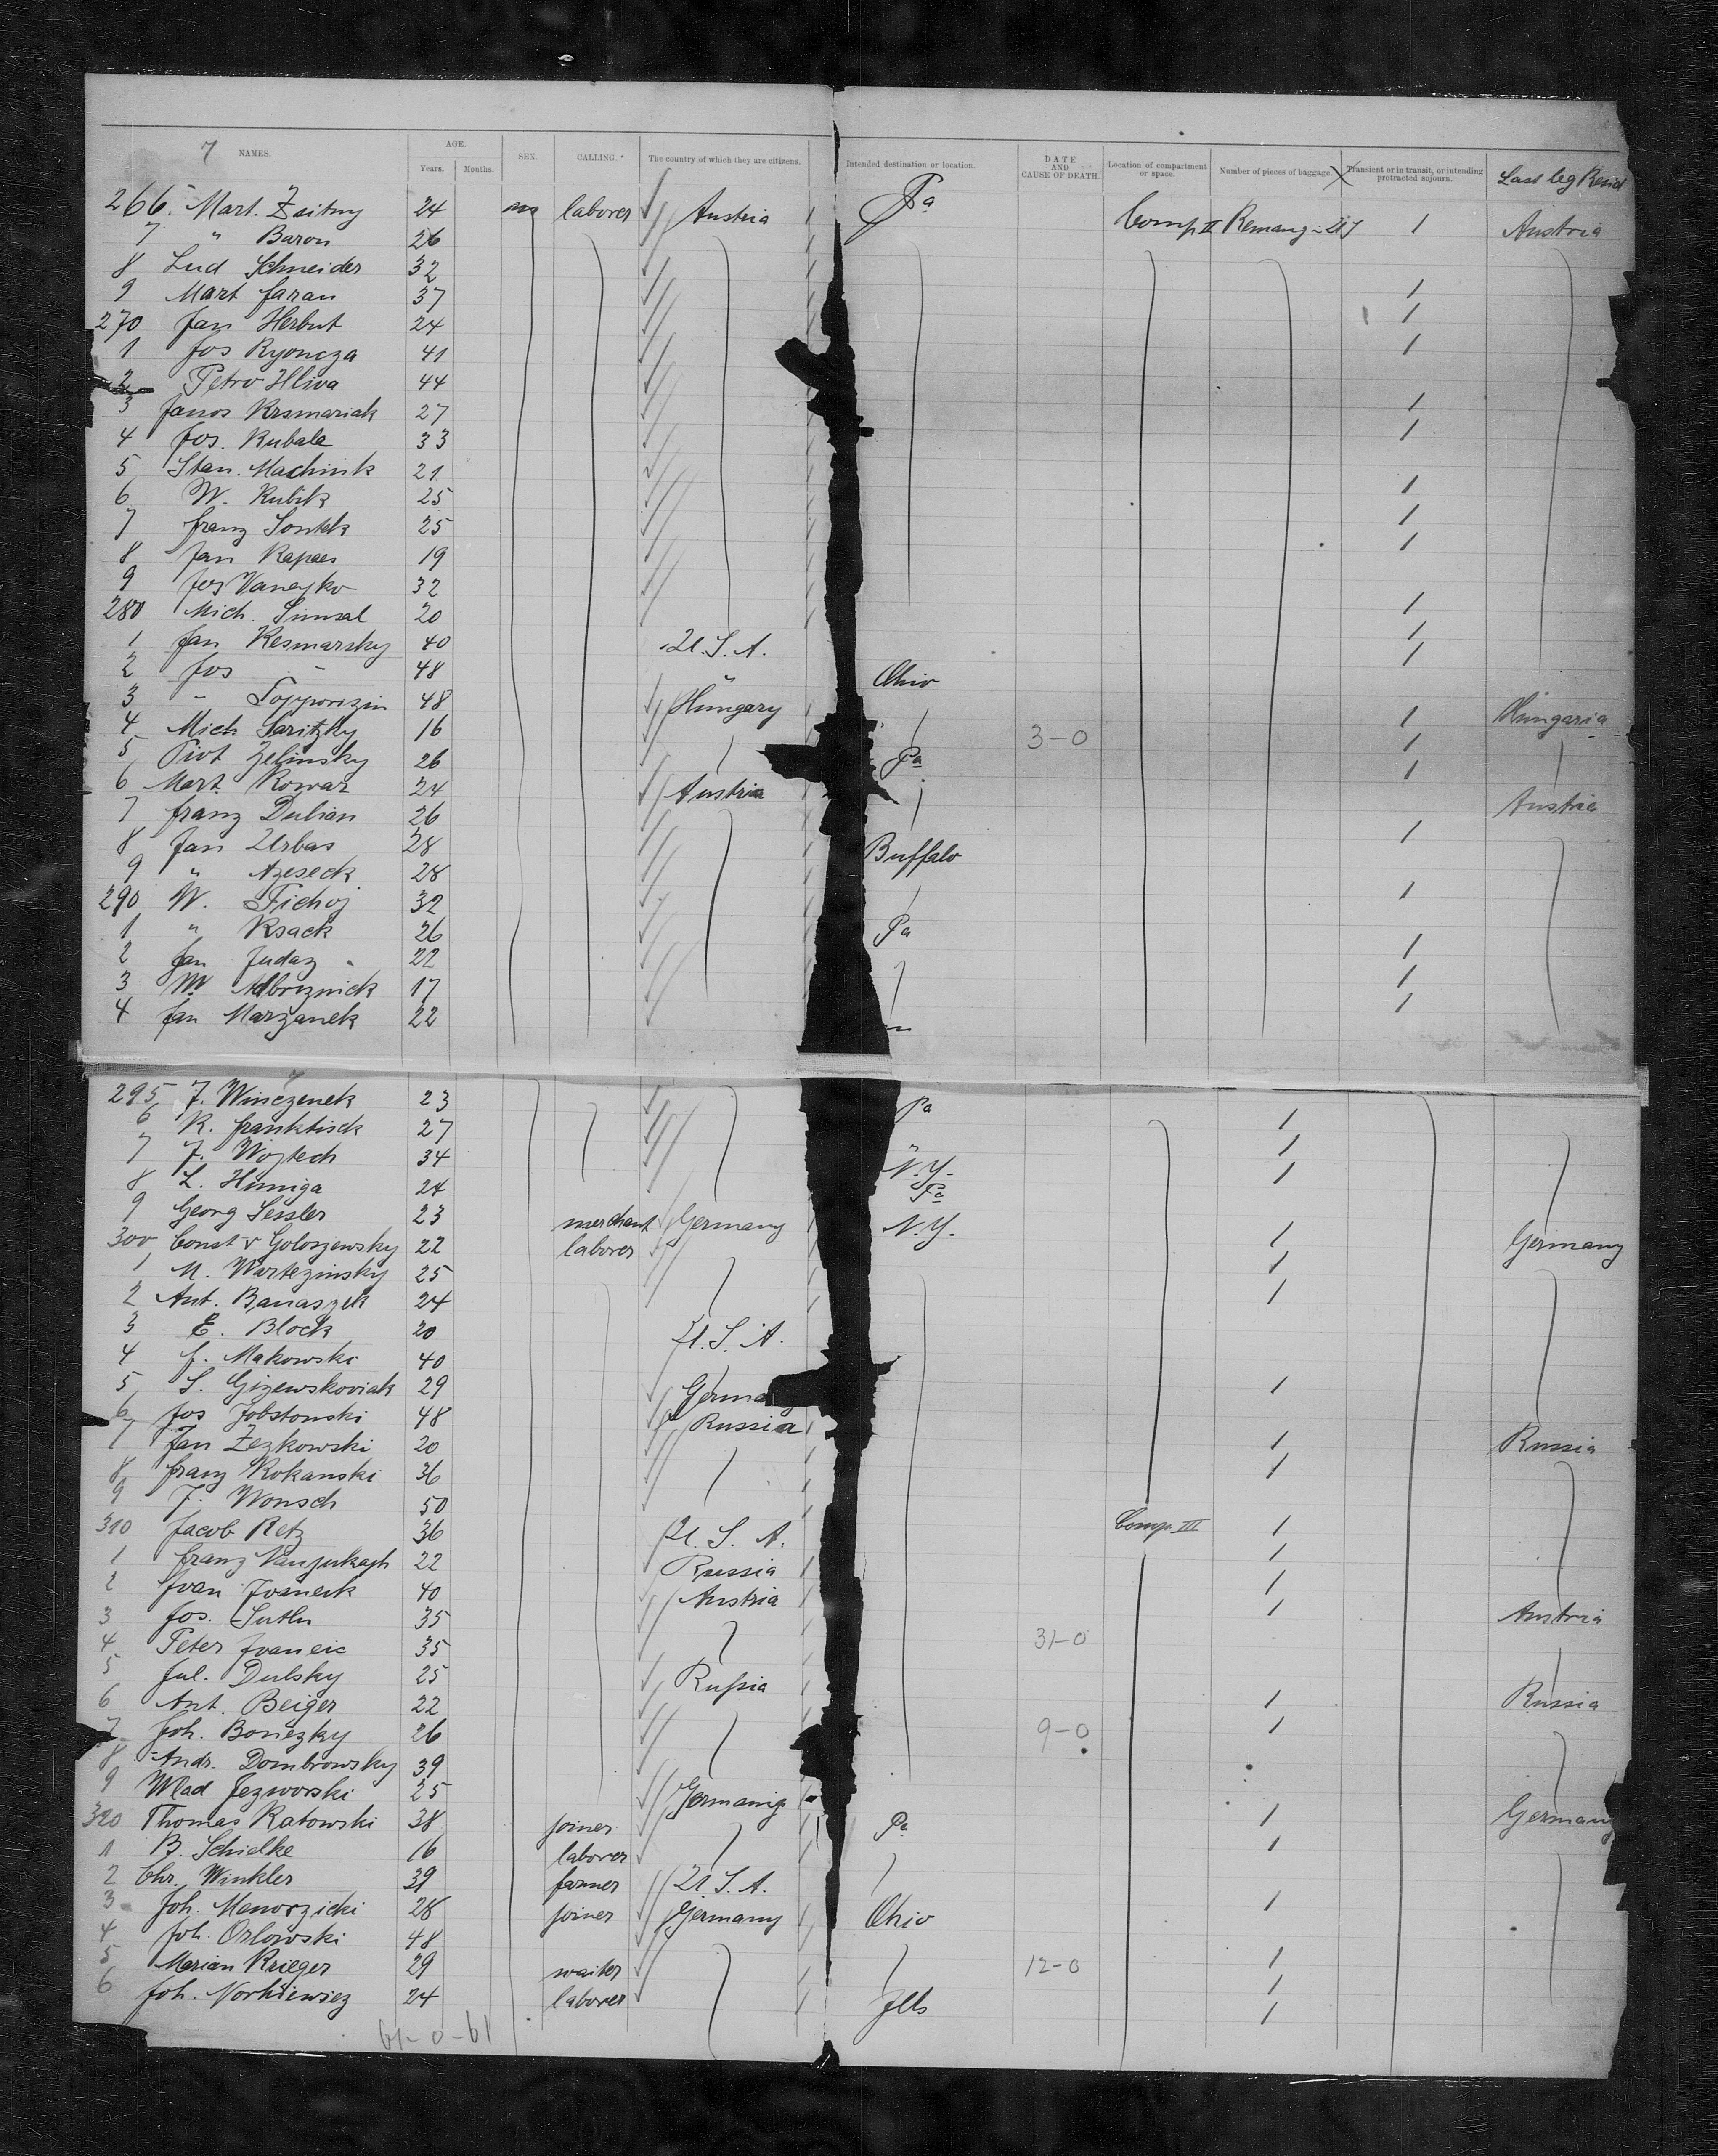 7 NAMES. AGE. Years. Months. SEX. CALLING. The country of which they are citizens. Intended destination or location. DATE AND CAUSE OF DEATH. Location of compartment or space. Number of pieces of baggage. Transient or in transit, or intending protracted sojourn. Last leg Resid
266. Mart. Zaitny 24 m laborer Austria Pa Comp II 1 Austria
7 " Baron 26
8 Lud Schneider 32
9 Mart Jaran 37 1
270 Jan Herbut 24 1
1 Jos Ryoncza 41 1
2 Petro Hliva 44
3 Janos Krsmariak 27 1
4 Jos. Kubala 33 1
5 Stan. Machink 21
6 W. Kubik 25 1
7 Franz Sontek 25 1
8 Jan 19 1
9 Jos Vanayko 32
280 Mich. Simsal 20 1
1 Jan Kesmarsky 40 U.S.A. 1
2 Jos " 48 Ohio 1
3 " Topporozin 48 Hungary Hungaria
4 Mich Saritzky 16 3-0 1
5 Piot Zelinsky 26 Pa 1
6 Mart. Kowar 24 Austria 1
7 Franz Dulian 26 Austria
8 Jan Urbas 28 Buffalo 1
9 " Azeseck 28
290 W. Fichoj 32 1
1 " Ksack 26 Pa
2 Jan Judaz 22 1
3 M Albreznick 17 1
4 Jan Marzanek 22 1
295 J. Winczenek 23 Pa 1
6 K. Franktisck 27 1
7 J. Wojtech 34 N.Y. 1
8 L. Huniga 24 Pa
9 Georg Sessler 23 merchant Germany N.Y. 1
300 Const v Goloszewsky 22 laborer 1 Germany
1 M. Wartezinsky 25 1
2 Ant. Banaszek 24
3 E. Block 20 U.S.A.
4 J. Makowski 40
5 S. Gizewskoviak 29 Germa 1
6 Jos Jobstonski 48 Russia
7 Jan Zezkowski 20 1 Russia
8 Franz Kokanski 36 1
9 J. Wonsch 50
310 Jacob Retz 36 U.S.A. Comp. III 1
1 Franz 22 Russia 1
2 Ivan Ivaneck 40 Austria 1
3 Jos. Sutln 35 1 Austria
4 Peter Ivaneic 35 31-0
5 Jul. Dulsky 25 Russia
6 Ant. Beiger 22 1 Russia
7 Joh. Boriezky 26 9-0 1
8 Andr. Dombrowsky 39
9 Wlad Jezworski 25 Germany
320 Thomas Ratowski 38 joiner Pa 1 Germany
1 B. Schielke 16 laborer 1
2 Chr. Winkler 39 farmer U.S.A.
3 Joh. Manorzicki 28 joiner Germany Ohio 1
4 Joh. Orlowski 48
5 Marian Krieger 29 waiter 12-0 1
6 Joh. Norkiewiez 24 laborer Ills 1
1
61-0-61